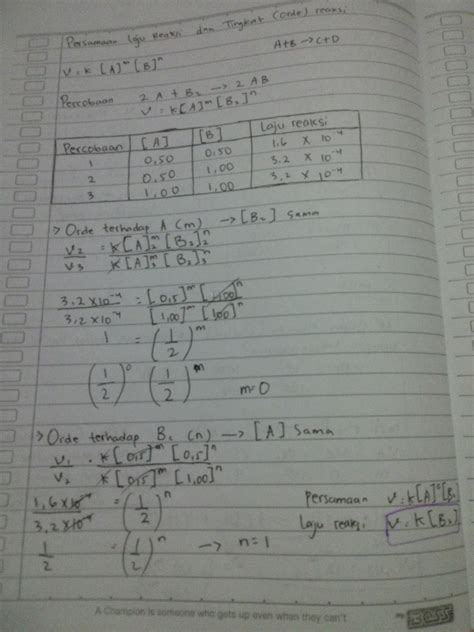 Persamaan laju reaksi dan Tingkat (orde) reaksi
A+B → C+D
V = k [A]^m [B]^n
Percobaan 2 A + B₂ → 2 AB
V = k[A]^m [B₂]^n
Percobaan [A] [B] Laju reaksi
1 0,50 0,50 1,6 x 10^-4
2 0,50 1,00 3,2 x 10^-4
3 1,00 1,00 3,2 x 10^-4
> Orde terhadap A (m) → [B₂] sama
V₂ = k[A]₂^m [B₂]₂^n
V₃ k[A]₃^m [B₂]₃^n
3,2 x 10^-4 = [0,5]^m [1,00]^n
3,2 x 10^-4 [1,00]^m [1,00]^n
1 = (1/2)^m
(1/2)^0 (1/2)^m m=0
> Orde terhadap B₂ (n) → [A] sama
V₁ = k[0,5]^m [0,5]^n
V₂ k[0,5]^m [1,00]^n
1,6 x 10^-4 = (1/2)^n
3,2 x 10^-4
Persamaan V = k[A]^0 [B₂
Laju reaksi V = k [B₂]
1/2 = (1/2)^n → n=1
A Champion is someone who gets up even when they can't.